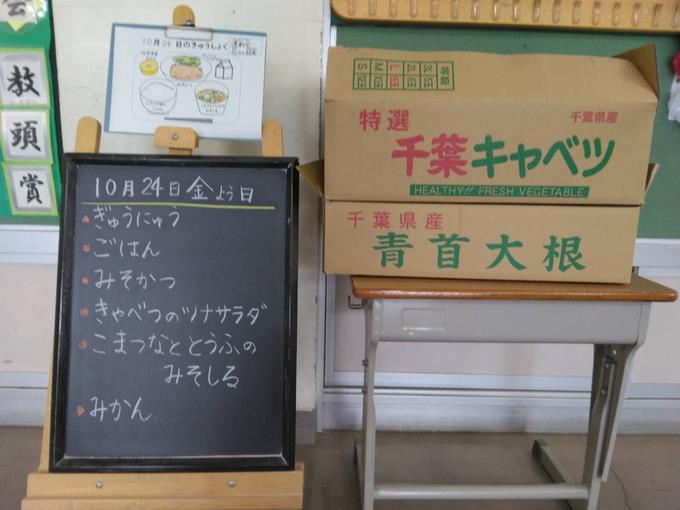 教
頭
賞
10月24日のきゅうしょく
10月24日金よう日
ぎゅうにゅう
ごはん
みそかつ
きゃべつのツナサラダ
こまつなととうふの
みそしる
みかん
特選
千葉県産
千葉キャベツ
HEALTHY!! FRESH VEGETABLE
千葉県産
青首大根